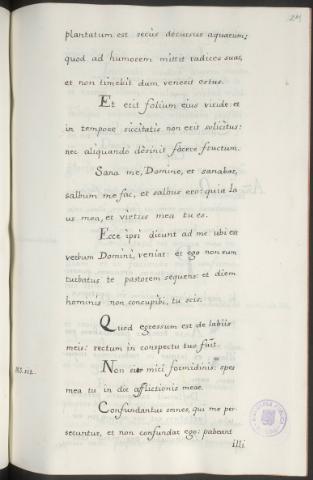 24
plantatum est secus decursus aquarum;
quod ad humorem mittit radices suas,
et non timebit dum venerit estus.
Et erit folium eius viride: et
in tempore siccitatis non erit solicitus:
nec aliquando desinit facere fructum.
Sana me, Domine, et sanabor,
salbum me fac, et salbus ero: quia la
us mea, et virtus mea tu es.
Ecce ipsi dicunt ad me ubi est
verbum Domini, veniat: et ego non sum
turbatus te pastorem sequens: et diem
hominis non concupibi, tu scis.
Quod egressum est de labiis
meis: rectum in conspectu tuo fuit.
Non sis mici formidinis: spes
mea tu in die afflictionis meae.
Confundantur omnes, qui me per
secuntur, et non confundar ego: pabeant
illi